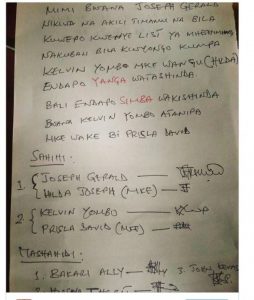 MIMI BWANA JOSEPH GERALD
NIKIWA NA AKILI TIMAMU NA BILA
KUWEPO KWENYE LIST YA
NAKUBALI BILA KINYONGO KUMPA
KELVIN YOMBO MKE WANGU (HILDA)
ENDAPO YANGA WATASHINDA
BALI ENDAPO SIMBA WAKISHINDA
BWANA KELVIN YOMBO ATANIPA
MKE WAKE BI PRISLA DAVID
SAHIHI:
1. JOSEPH GERALD
HILDA JOSEPH (MKE)
2. KELVIN YOMBO
PRISLA DAVID (MKE)
MASHAHIDI:
1. BAKARI ALLY 3. JOHN